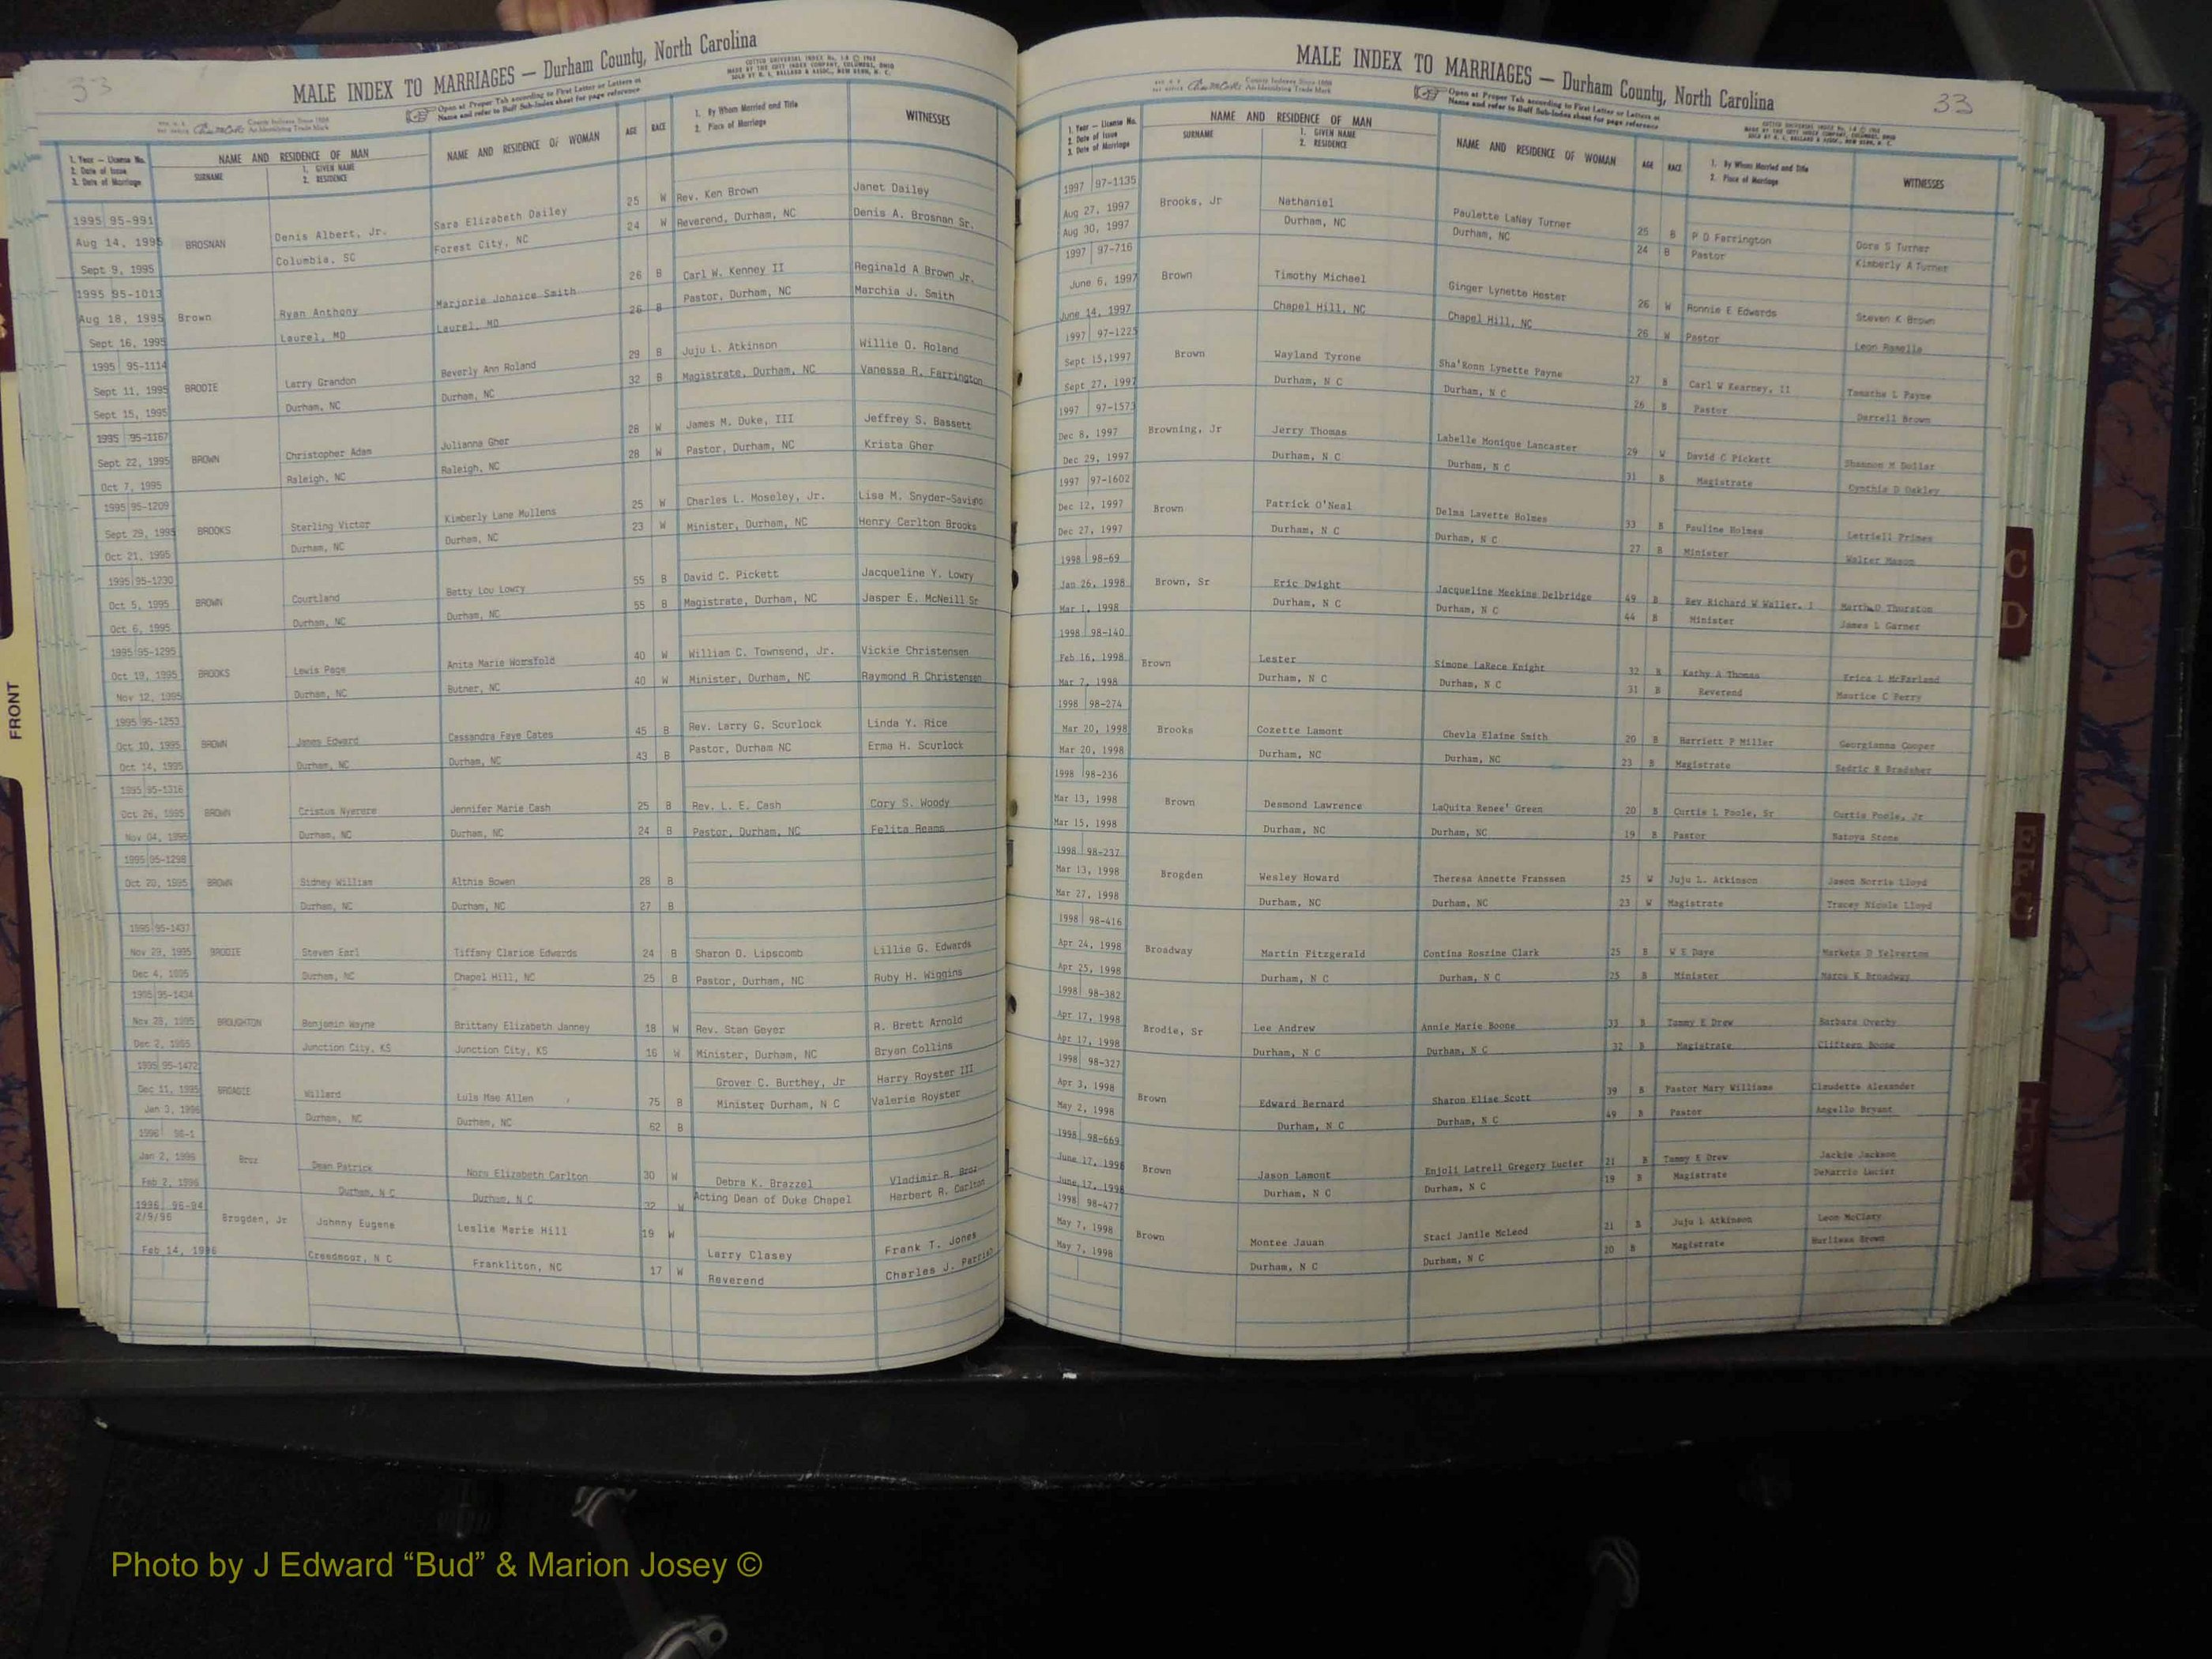 33
MALE INDEX TO MARRIAGES — Durham County, North Carolina
Open at Proper Tab according to First Letter or Letters of
Name and refer to Buff Sub-Index sheet for page reference
COTTCO UNIVERSAL INDEX No. 1-8 © 1962
MADE BY THE COTT INDEX COMPANY, COLUMBUS, OHIO
County Indexes Since 1888
An Identifying Trade Mark
1. Year — License No.
2. Date of Issue
3. Date of Marriage
NAME AND RESIDENCE OF MAN
SURNAME
1. GIVEN NAME
2. RESIDENCE
NAME AND RESIDENCE OF WOMAN
AGE
RACE
1. By Whom Married and Title
2. Place of Marriage
WITNESSES
1995 95-991 25 W Rev. Ken Brown Janet Dailey
Aug 14, 1995 BROSNAN Denis Albert, Jr. Sara Elizabeth Dailey 24 W Reverend, Durham, NC Denis A. Brosnan Sr.
Sept 9, 1995 Columbia, SC Forest City, NC
1995 95-1013 26 B Carl W. Kenney II Reginald A Brown Jr.
Aug 18, 1995 Brown Ryan Anthony Marjorie Johnice Smith 26 B Pastor, Durham, NC Marchia J. Smith
Sept 16, 1995 Laurel, MD Laurel, MD
1995 95-1114 29 B Juju L. Atkinson Willie O. Roland
Sept 11, 1995 BRODIE Larry Grandon Beverly Ann Roland 32 B Magistrate, Durham, NC Vanessa R. Farrington
Sept 15, 1995 Durham, NC Durham, NC
1995 95-1167 28 W James M. Duke, III Jeffrey S. Bassett
Sept 22, 1995 BROWN Christopher Adam Julianna Gher 28 W Pastor, Durham, NC Krista Gher
Oct 7, 1995 Raleigh, NC Raleigh, NC
1995 95-1209 25 W Charles L. Moseley, Jr. Lisa M. Snyder-Savigno
Sept 29, 1995 BROOKS Sterling Victor Kimberly Lane Mullens 23 W Minister, Durham, NC Henry Carlton Brooks
Oct 21, 1995 Durham, NC Durham, NC
1995 95-1230 55 B David C. Pickett Jacqueline Y. Lowry
Oct 5, 1995 BROWN Courtland Betty Lou Lowry 55 B Magistrate, Durham, NC Jasper E. McNeill Sr
Oct 6, 1995 Durham, NC Durham, NC
1995 95-1295 40 W William C. Townsend, Jr. Vickie Christensen
Oct 19, 1995 BROOKS Lewis Page Anita Marie Worsfold 40 W Minister, Durham, NC Raymond R Christensen
Nov 12, 1995 Durham, NC Butner, NC
1995 95-1253 45 B Rev. Larry G. Scurlock Linda Y. Rice
Oct 10, 1995 BROWN James Edward Cassandra Faye Cates 43 B Pastor, Durham NC Erma H. Scurlock
Oct 14, 1995 Durham, NC Durham, NC
1995 95-1316
Oct 26, 1995 BROWN Cristus Nyerere Jennifer Marie Cash 25 B Rev. L. E. Cash Cory S. Woody
Nov 04, 1995 Durham, NC Durham, NC 24 B Pastor, Durham, NC Felita Reams
1995 95-1298
Oct 20, 1995 BROWN Sidney William Althia Bowen 28 B
Durham, NC Durham, NC 27 B
1995 95-1437
Nov 29, 1995 BRODIE Steven Earl Tiffany Clarice Edwards 24 B Sharon O. Lipscomb Lillie G. Edwards
Dec 4, 1995 Durham, NC Chapel Hill, NC 25 B Pastor, Durham, NC Ruby H. Wiggins
1995 95-1434
Nov 28, 1995 BROUGHTON Benjamin Wayne Brittany Elizabeth Janney 18 W Rev. Stan Goyer R. Brett Arnold
Dec 2, 1995 Junction City, KS Junction City, KS 16 W Minister, Durham, NC Bryan Collins
1995 95-1472 Grover C. Burthey, Jr Harry Royster III
Dec 11, 1995 BROADIE Willard Lula Mae Allen 75 B Minister Durham, N C Valerie Royster
Jan 3, 1996 Durham, NC Durham, NC 62 B
1996 96-1
Jan 2, 1996 Broz Dean Patrick Nora Elizabeth Carlton 30 W Debra K. Brazzel Vladimir R. Broz
Feb 2, 1996 Durham, N C Durham, N C 32 W Acting Dean of Duke Chapel Herbert R. Carlton
1996 96-94
2/9/96 Brogden, Jr Johnny Eugene Leslie Marie Hill 19 W Larry Clasey Frank T. Jones
Feb 14, 1996 Creedmoor, N C Frankliton, NC 17 W Reverend Charles J. Parrish
MALE INDEX TO MARRIAGES — Durham County, North Carolina
33
Open at Proper Tab according to First Letter or Letters of
Name and refer to Buff Sub-Index sheet for page reference
County Indexes Since 1888
An Identifying Trade Mark
COTTCO UNIVERSAL INDEX No. 1-8 © 1962
MADE BY THE COTT INDEX COMPANY, COLUMBUS, OHIO
1. Year — License No.
2. Date of Issue
3. Date of Marriage
NAME AND RESIDENCE OF MAN
SURNAME
1. GIVEN NAME
2. RESIDENCE
NAME AND RESIDENCE OF WOMAN
AGE
RACE
1. By Whom Married and Title
2. Place of Marriage
WITNESSES
1997 97-1135
Aug 27, 1997 Brooks, Jr Nathaniel Paulette LaNay Turner 25 B P D Farrington Dora S Turner
Aug 30, 1997 Durham, NC Durham, NC 24 B Pastor Kimberly A Turner
1997 97-716
June 6, 1997 Brown Timothy Michael Ginger Lynette Hoster 26 W Ronnie E Edwards Steven K Brown
June 14, 1997 Chapel Hill, NC Chapel Hill, NC 26 W Pastor Leon Ramella
1997 97-1225
Sept 15,1997 Brown Wayland Tyrone Sha'Ronn Lynette Payne 27 B Carl W Kearney, II Tamatha L Payne
Sept 27, 1997 Durham, N C Durham, N C 26 B Pastor Darrell Brown
1997 97-1573
Dec 8, 1997 Browning, Jr Jerry Thomas Labelle Monique Lancaster 29 W David C Pickett Shannon M Dollar
Dec 29, 1997 Durham, N C Durham, N C 31 B Magistrate Cynthia D Oakley
1997 97-1602
Dec 12, 1997 Brown Patrick O'Neal Delma Lavette Holmes 33 B Pauline Holmes Letriell Primes
Dec 27, 1997 Durham, N C Durham, N C 27 B Minister Walter Mason
1998 98-69
Jan 26, 1998 Brown, Sr Eric Dwight Jacqueline Meekins Delbridge 49 B Rev Richard W Waller, I Martha O Thurston
Mar 1, 1998 Durham, N C Durham, N C 44 B Minister James L Garner
1998 98-140
Feb 16, 1998 Brown Lester Simone LaRece Knight 32 B Kathy A Thomas Erica L McFarland
Mar 7, 1998 Durham, N C Durham, N C 31 B Reverend Maurice C Perry
1998 98-274
Mar 20, 1998 Brooks Cozette Lamont Chevla Elaine Smith 20 B Harriett P Miller Georgianna Cooper
Mar 20, 1998 Durham, NC Durham, NC 23 B Magistrate Sedric R Bradsher
1998 98-236
Mar 13, 1998 Brown Desmond Lawrence LaQuita Renee' Green 20 B Curtis L Poole, Sr Curtis Poole, Jr
Mar 15, 1998 Durham, NC Durham, NC 19 B Pastor Natoya Stone
1998 98-237
Mar 13, 1998 Brogden Wesley Howard Theresa Annette Franssen 25 W Juju L. Atkinson Jason Norris Lloyd
Mar 27, 1998 Durham, NC Durham, NC 23 W Magistrate Tracey Nicole Lloyd
1998 98-416
Apr 24, 1998 Broadway Martin Fitzgerald Contina Roszine Clark 25 B W E Daye Marketa D Yelverton
Apr 25, 1998 Durham, N C Durham, N C 25 B Minister Marco K Broadway
1998 98-382
Apr 17, 1998 Brodie, Sr Lee Andrew Annie Marie Boone 33 B Tommy E Drew Barbara Overby
Apr 17, 1998 Durham, N C Durham, N C 32 B Magistrate Clifteen Boone
1998 98-327
Apr 3, 1998 Brown Edward Bernard Sharon Elise Scott 39 B Pastor Mary Williams Claudette Alexander
May 2, 1998 Durham, N C Durham, N C 49 B Pastor Angello Bryant
1998 98-669
June 17, 1998 Brown Jason Lamont Enjoli Latrell Gregory Lucier 21 B Tommy E Drew Jackie Jackson
June 17, 1998 Durham, N C Durham, N C 19 B Magistrate DeMarrio Lucier
1998 98-477
May 7, 1998 Brown Montee Jauan Staci Janile McLeod 21 B Juju L Atkinson Leon McClary
May 7, 1998 Durham, N C Durham, N C 20 B Magistrate Brown
FRONT
C
D
E F G
Photo by J Edward “Bud” & Marion Josey ©